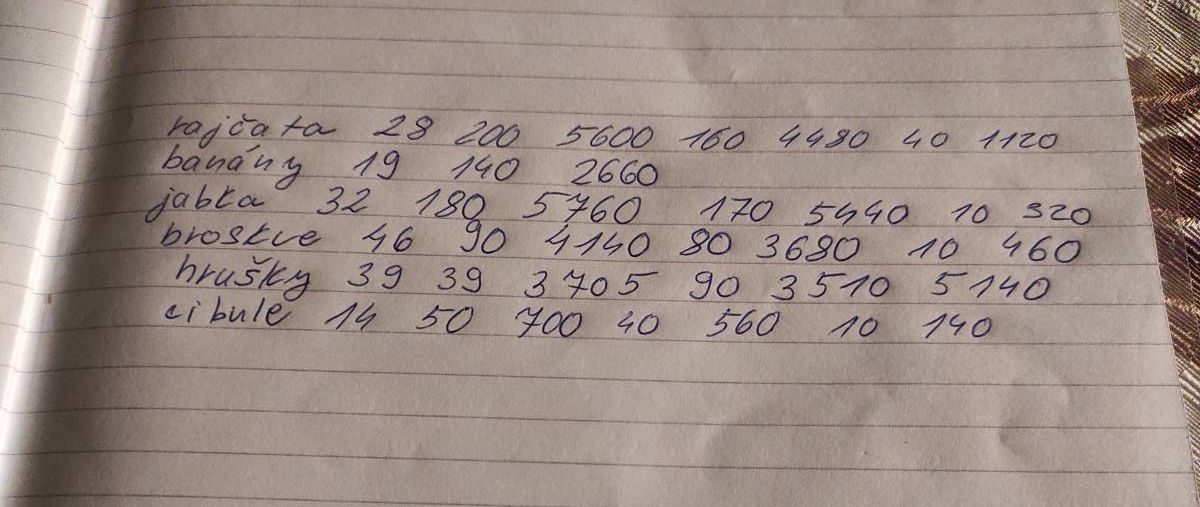 rajčata 28 200 5600 160 4480 40 1120
banány 19 140 2660
jablka 32 180 5760 170 5440 10 320
broskve 46 90 4140 80 3680 10 460
hrušky 39 39 3705 90 3510 5 140
cibule 14 50 700 40 560 10 140